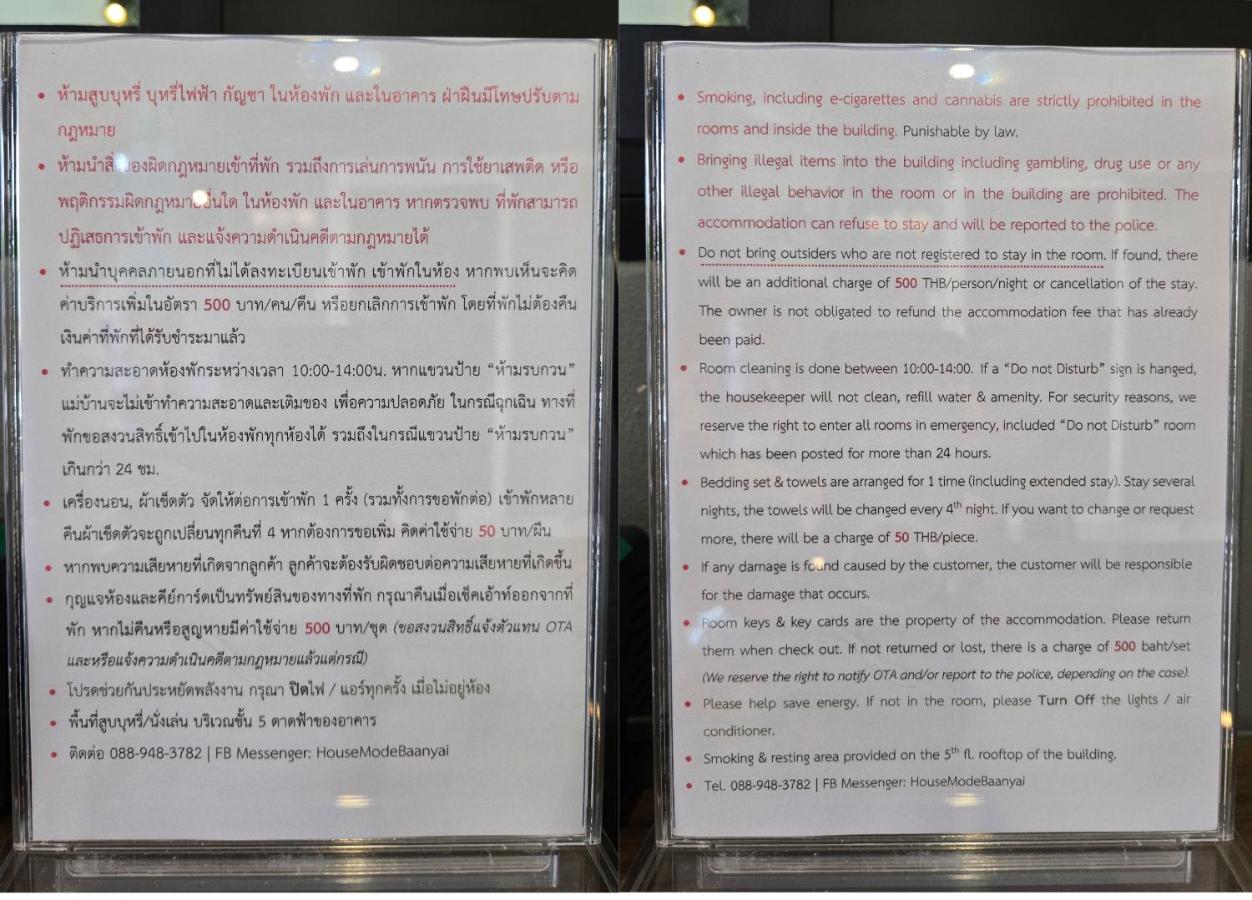 • ห้ามสูบบุหรี่ บุหรี่ไฟฟ้า กัญชา ในห้องพัก และในอาคาร ฝ่าฝืนมีโทษปรับตาม
กฎหมาย
• ห้ามนำสิ่งของผิดกฎหมายเข้าที่พัก รวมถึงการเล่นการพนัน การใช้ยาเสพติด หรือ
พฤติกรรมผิดกฎหมายอื่นใด ในห้องพัก และในอาคาร หากตรวจพบ ที่พักสามารถ
ปฏิเสธการเข้าพัก และแจ้งความดำเนินคดีตามกฎหมายได้
• ห้ามนำบุคคลภายนอกที่ไม่ได้ลงทะเบียนเข้าพัก เข้าพักในห้อง หากพบเห็นจะคิด
ค่าบริการเพิ่มในอัตรา 500 บาท/คน/คืน หรือยกเลิกการเข้าพัก โดยที่พักไม่ต้องคืน
เงินค่าที่พักที่ได้รับชำระมาแล้ว
• ทำความสะอาดห้องพักระหว่างเวลา 10:00-14:00น. หากแขวนป้าย “ห้ามรบกวน”
แม่บ้านจะไม่เข้าทำความสะอาดและเติมของ เพื่อความปลอดภัย ในกรณีฉุกเฉิน ทางที่
พักขอสงวนสิทธิ์เข้าไปในห้องพักทุกห้องได้ รวมถึงในกรณีแขวนป้าย “ห้ามรบกวน”
เกินกว่า 24 ชม.
• เครื่องนอน, ผ้าเช็ดตัว จัดให้ต่อการเข้าพัก 1 ครั้ง (รวมทั้งการขอพักต่อ) เข้าพักหลาย
คืนผ้าเช็ดตัวจะถูกเปลี่ยนทุกคืนที่ 4 หากต้องการขอเพิ่ม คิดค่าใช้จ่าย 50 บาท/ผืน
• หากพบความเสียหายที่เกิดจากลูกค้า ลูกค้าจะต้องรับผิดชอบต่อความเสียหายที่เกิดขึ้น
• กุญแจห้องและคีย์การ์ดเป็นทรัพย์สินของทางที่พัก กรุณาคืนเมื่อเช็คเอ้าท์ออกจากที่
พัก หากไม่คืนหรือสูญหายมีค่าใช้จ่าย 500 บาท/ชุด (ขอสงวนสิทธิ์แจ้งตัวแทน OTA
และหรือแจ้งความดำเนินคดีตามกฎหมายแล้วแต่กรณี)
• โปรดช่วยกันประหยัดพลังงาน กรุณา ปิดไฟ / แอร์ทุกครั้ง เมื่อไม่อยู่ห้อง
• พื้นที่สูบบุหรี่/นั่งเล่น บริเวณชั้น 5 ดาดฟ้าของอาคาร
• ติดต่อ 088-948-3782 | FB Messenger: HouseModeBaanyai
• Smoking, including e-cigarettes and cannabis are strictly prohibited in the
rooms and inside the building. Punishable by law.
• Bringing illegal items into the building including gambling, drug use or any
other illegal behavior in the room or in the building are prohibited. The
accommodation can refuse to stay and will be reported to the police.
• Do not bring outsiders who are not registered to stay in the room. If found, there
will be an additional charge of 500 THB/person/night or cancellation of the stay.
The owner is not obligated to refund the accommodation fee that has already
been paid.
• Room cleaning is done between 10:00-14:00. If a “Do not Disturb” sign is hanged,
the housekeeper will not clean, refill water & amenity. For security reasons, we
reserve the right to enter all rooms in emergency, included “Do not Disturb” room
which has been posted for more than 24 hours.
• Bedding set & towels are arranged for 1 time (including extended stay). Stay several
nights, the towels will be changed every 4th night. If you want to change or request
more, there will be a charge of 50 THB/piece.
• If any damage is found caused by the customer, the customer will be responsible
for the damage that occurs.
• Room keys & key cards are the property of the accommodation. Please return
them when check out. If not returned or lost, there is a charge of 500 baht/set
(We reserve the right to notify OTA and/or report to the police, depending on the case)
• Please help save energy. If not in the room, please Turn Off the lights / air
conditioner.
• Smoking & resting area provided on the 5th fl. rooftop of the building.
• Tel. 088-948-3782 | FB Messenger: HouseModeBaanyai